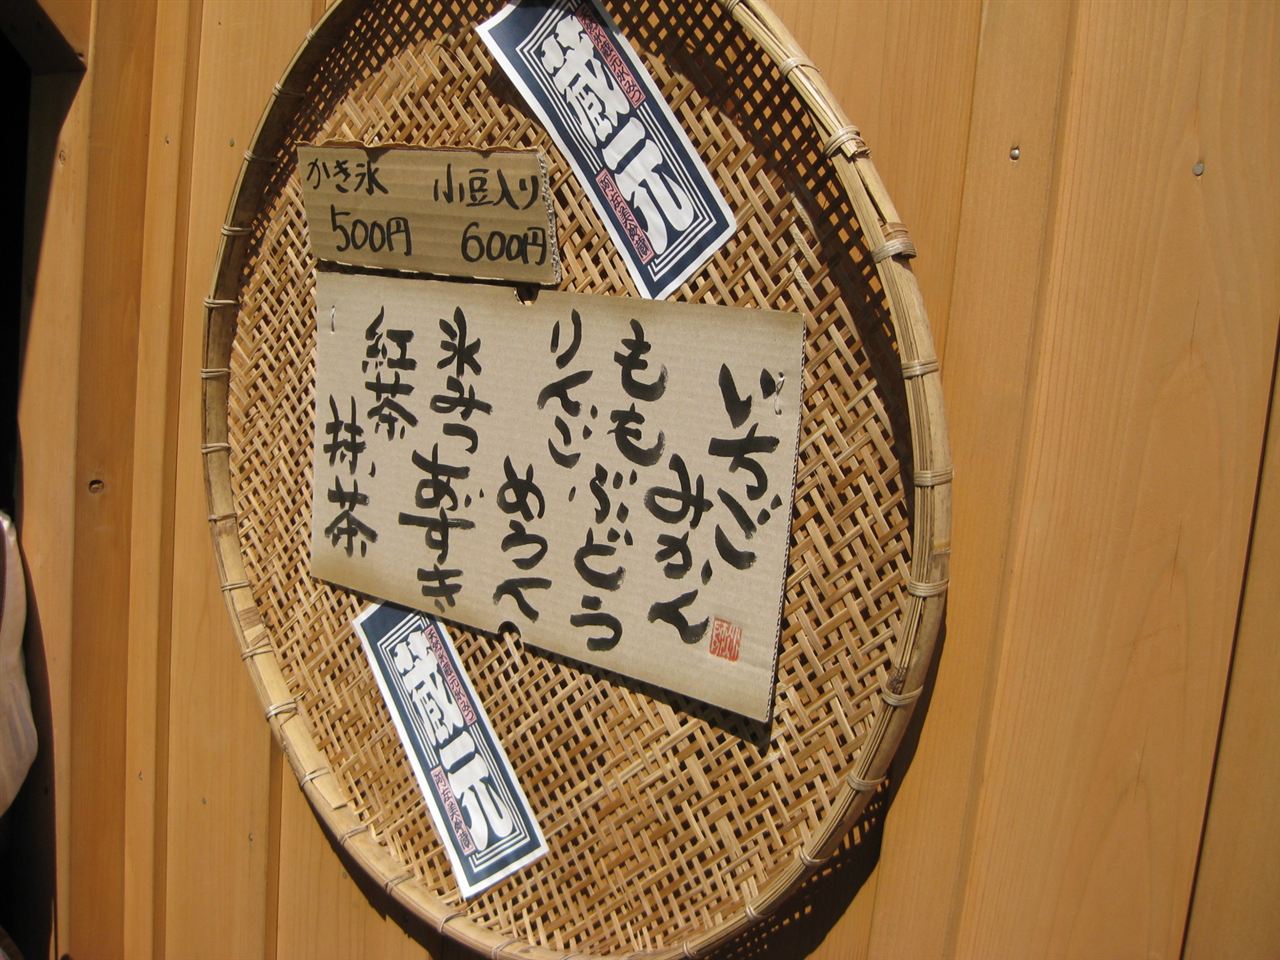 かき氷 小豆入り
500円 600円
いちご
みかん
もも
ぶどう
りんご
めろん
氷みつ
あずき
紅茶
抹茶
蔵元
蔵元